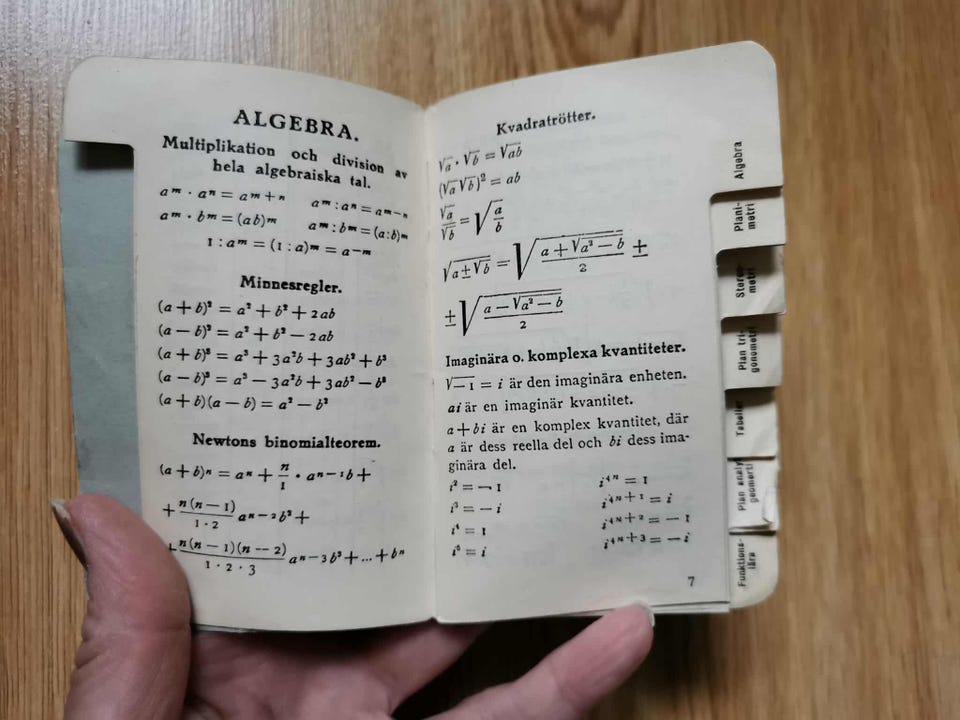 ALGEBRA.
Multiplikation och division av
hela algebraiska tal.
aᵐ · aⁿ = aᵐ⁺ⁿ aᵐ : aⁿ = aᵐ⁻ⁿ
aᵐ · bᵐ = (ab)ᵐ aᵐ : bᵐ = (a:b)ᵐ
1 : aᵐ = (1 : a)ᵐ = a⁻ᵐ
Minnesregler.
(a + b)² = a² + b² + 2ab
(a − b)² = a² + b² − 2ab
(a + b)³ = a³ + 3a²b + 3ab² + b³
(a − b)³ = a³ − 3a²b + 3ab² − b³
(a + b)(a − b) = a² − b²
Newtons binomialteorem.
(a + b)ⁿ = aⁿ + n/1 · aⁿ⁻¹b +
+ n(n − 1)/1 · 2 aⁿ⁻²b² +
+ n(n − 1)(n − 2)/1 · 2 · 3 aⁿ⁻³b³ + ... + bⁿ
Kvadratrötter.
√a · √b = √ab
(√a √b)² = ab
√a/√b = √(a/b)
√(a ± √b) = √((a + √(a² − b))/2) ±
± √((a − √(a² − b))/2)
Imaginära o. komplexa kvantiteter.
√−1 = i är den imaginära enheten.
ai är en imaginär kvantitet.
a + bi är en komplex kvantitet, där
a är dess reella del och bi dess ima-
ginära del.
i² = − 1 i⁴ⁿ = 1
i³ = − i i⁴ⁿ⁺¹ = i
i⁴ = 1 i⁴ⁿ⁺² = − 1
i⁵ = i i⁴ⁿ⁺³ = − i
7
Algebra
Plani-
metri
Stereo-
metri
Plan tri-
gonometri
Tabeller
Plan analyt
geometri
Funktions-
lära